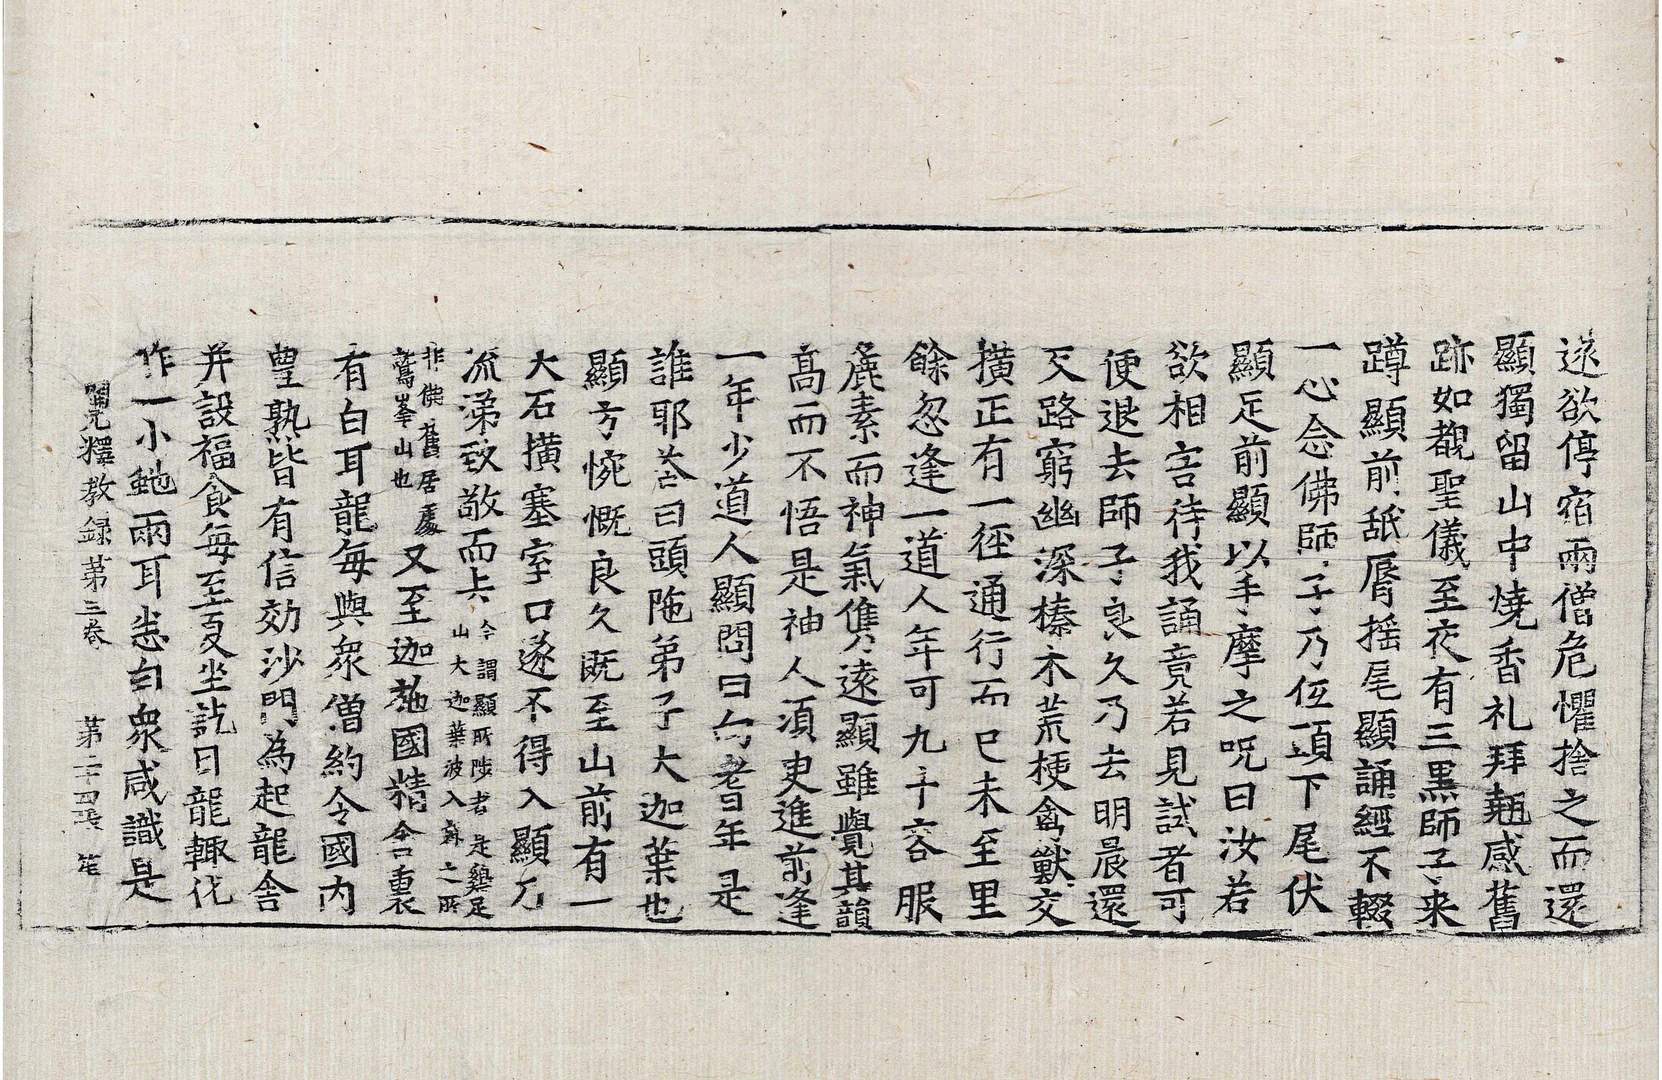 遠欲停宿兩僧危懼捨之而還
顯獨留山中燒香礼拜翹感舊
跡如覩聖儀至夜有三黑師子来
蹲顯前舐脣揺尾顯誦經不輟
一心念佛師子乃伍頭下尾伏
顯足前顯以手摩之呪曰汝若
欲相害待我誦竟若見試者可
便退去師子良久乃去明晨還
反路窮幽深榛木荒梗禽獸交
横正有一徑通行而已未至里
餘忽逢一道人年可九十容服
麁素而神氣儁遠顯雖覺其韻
高而不悟是神人須臾進前逢
一年少道人顯問曰向耆年是
誰耶荅曰頭陁弟子大迦葉也
顯方惋慨良久既至山前有一
大石横塞室口遂不得入顯乃
流涕致敬而去今謂顯所陟者是雞足
山大迦葉波入寂之所
非佛舊居處
鷲峯山也又至迦施國精舍裏
有白耳龍每與衆僧約令國内
豊熟皆有信効沙門為起龍舍
并設福食每至夏坐訖日龍輙化
作一小虵兩耳悉白衆咸識是
開元釋教録第三卷 第二十四張 笙